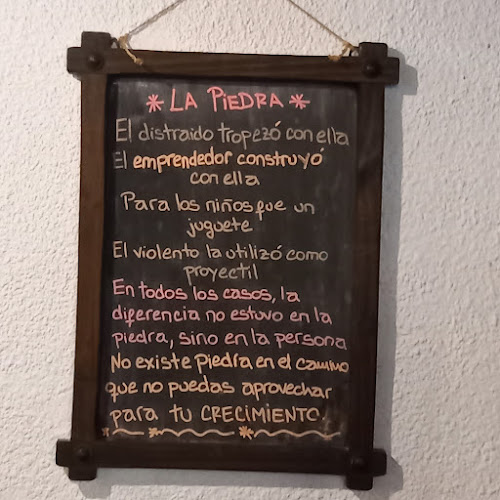 * LA PIEDRA *
El distraido tropezó con ella
El emprendedor construyó
con ella
Para los niños fue un
juguete
El violento la utilizó como
proyectil
En todos los casos, la
diferencia no estuvo en la
piedra, sino en la persona
No existe piedra en el camino
que no puedas aprovechar
para tu CRECIMIENTO.